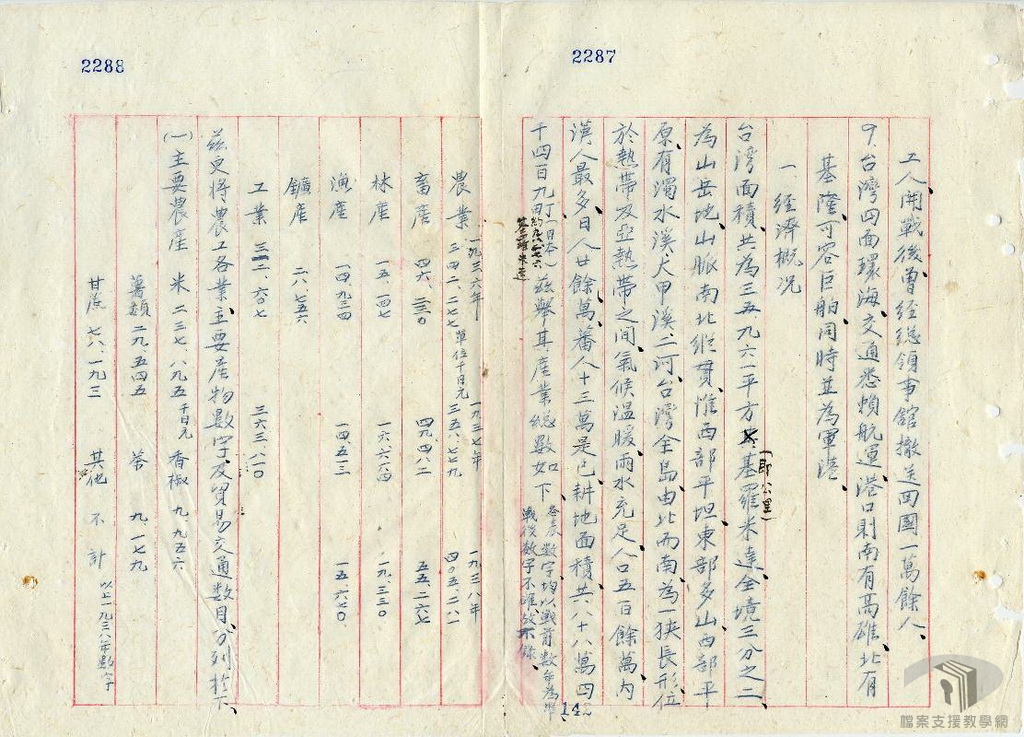 2287
工人、開戰後、曾經總領事館撤送回國一萬餘人、
9、台灣四面環海、交通悉賴航運、港口則南有高雄、北有
基隆、可容巨舶、同時並為軍港、
一 經濟概况
台灣面積、共為三五九六一平方基羅米達(即公里)、全境三分之二、
為山岳地、山脈南北縱貫、惟西部平坦、東部多山、西部平
原、有濁水溪、大甲溪、二河、台灣全島、由北而南、為一狹長形、位
於熱帶及亞熱帶之間、氣候溫暖、雨水充足、人口五百餘萬、內
漢人最多、日人廿餘萬、蕃人十三萬、是已耕地面積、共八十八萬四
千四百九 茲舉其產業總數如下、 各表數字、均以戰前數年為準 戰後數字不確、故不錄、
142
2288
一九三六年 單位千日元 一九三七年 一九三八年
農業 三四二、二七七 三五八、七七九 四〇五、二八一
畜產 四六、三三〇 四九、四八二 五五、二六七
林產 一五、一四七 一六、六六四 一九、三三〇
漁產 一四、九三四 一四、五二三 一五、六七〇
鑛產 二八、七五六
工業 三一二、六〇七 三六三、八一〇
茲更將農工各業、主要產物數字、及貿易交通數目、分列於下、
(一)主要農產 米 二三七、八九五千日元 香椒 九、九五六
薯類 二九、五四五 茶 九、一七九
甘蔗 七六、一九三 其他不計 以上一九三八年數字
檔案支援教學網